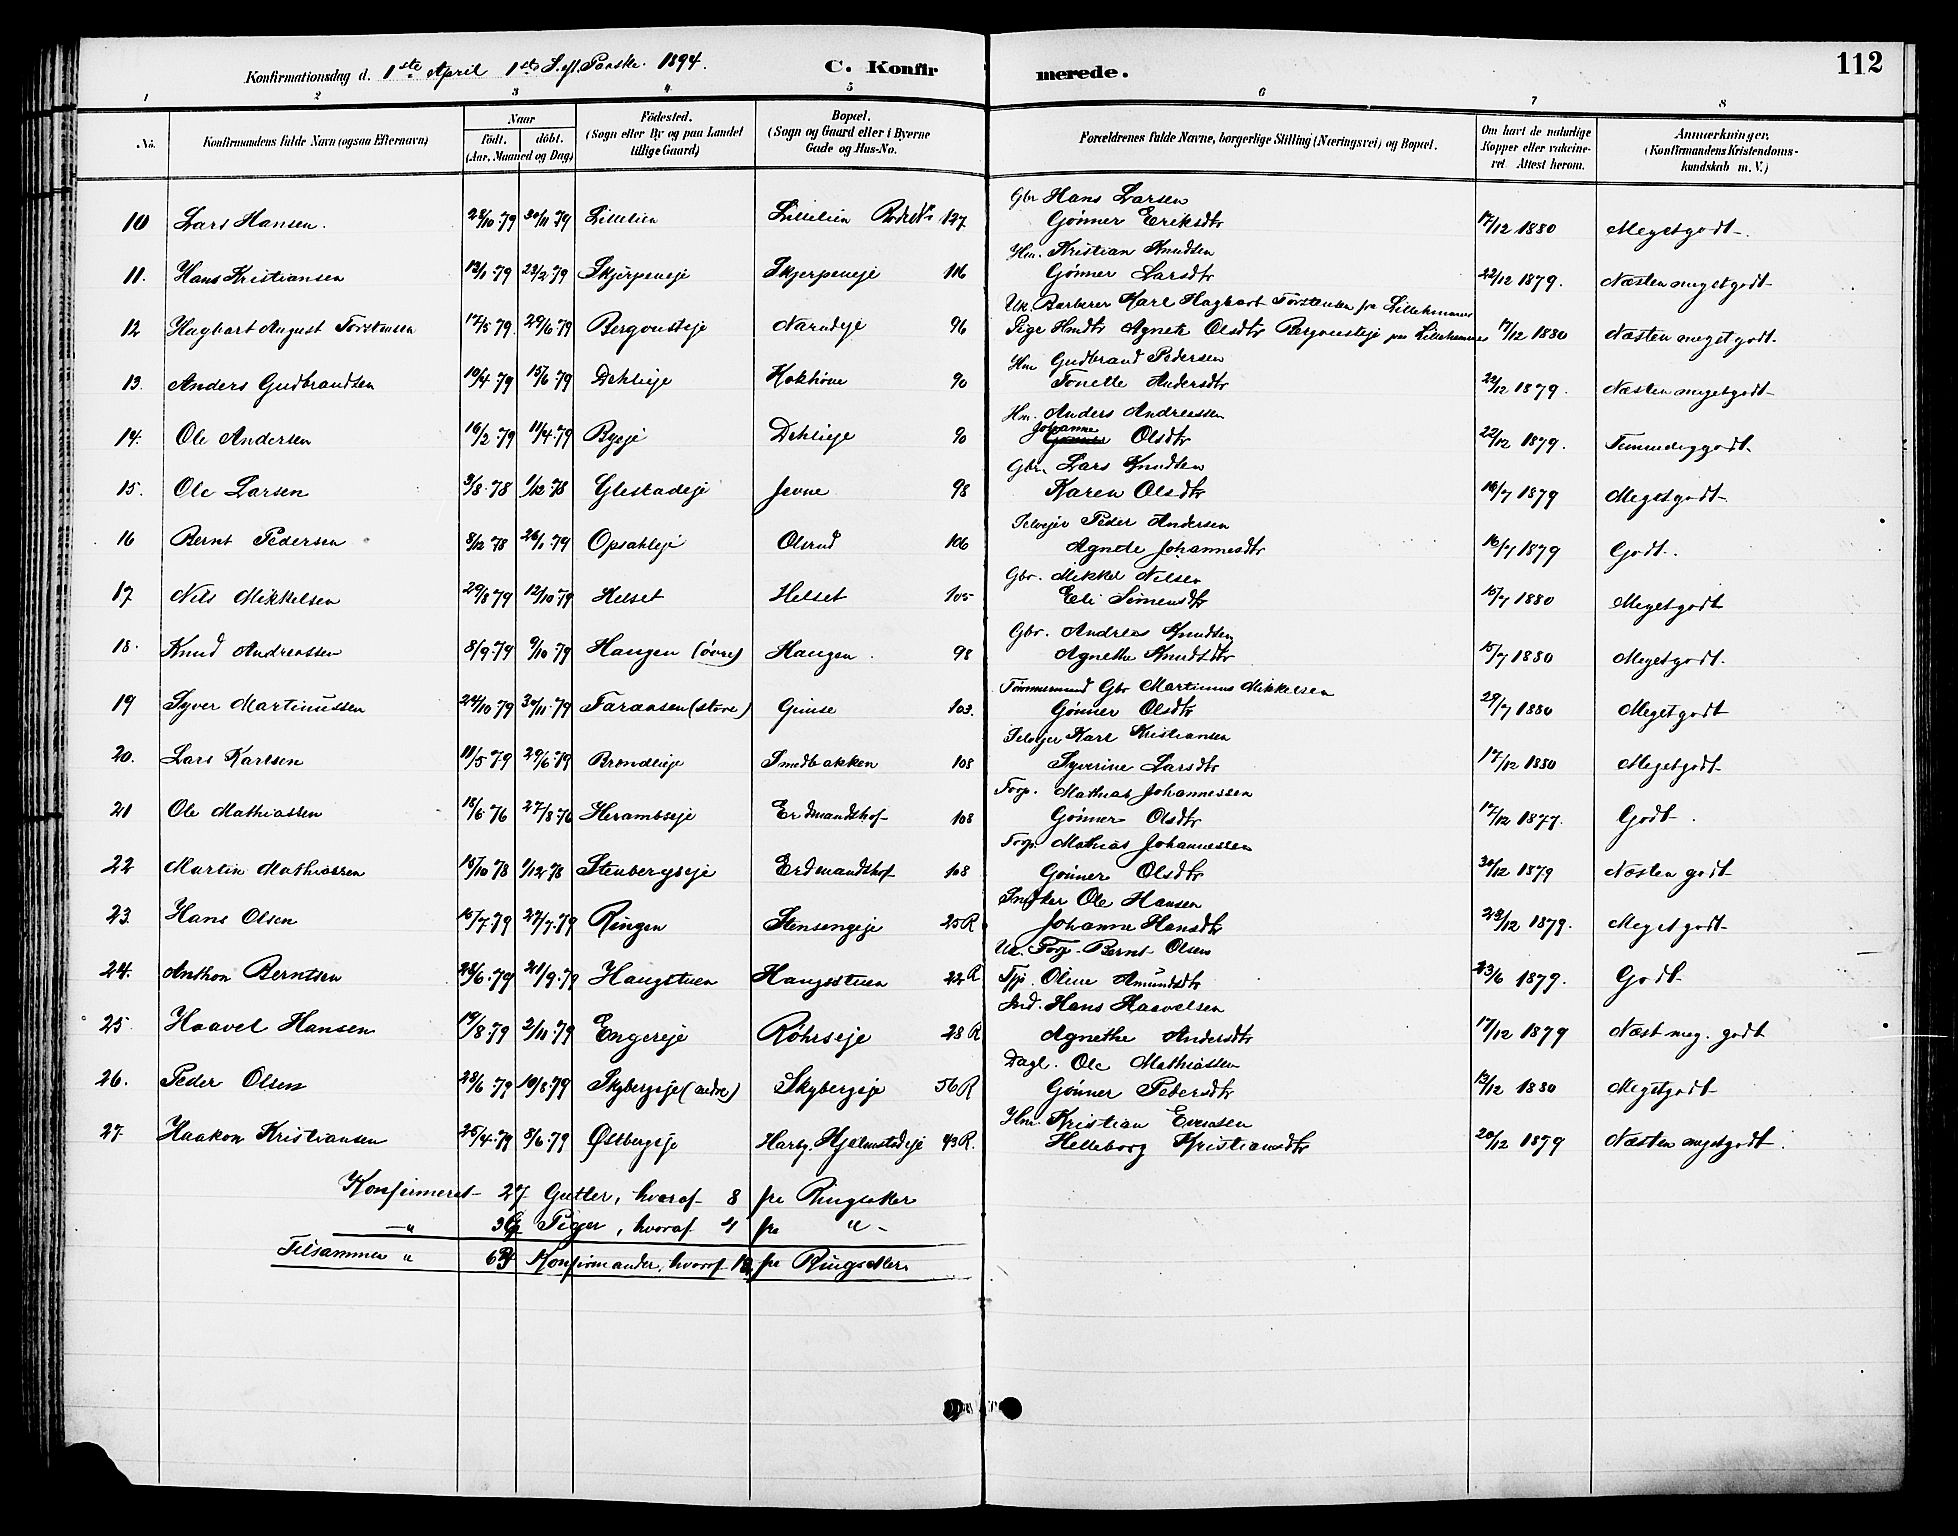 Konfirmationsdag d. 1ste April 1ste S. eft. Paaske. 1894. C. Konfirmerede. 112
1 2 3 4 5 6 7 8
No. Konfirmandens fulde Navn (ogsaa Efternavn) Naar født. døbt. (Aar, Maaned og Dag) Födested. (Sogn eller By og paa Landet tillige Gaard) Bopæl. (Sogn og Gaard eller i Byerne Gade og Hus-No. Forældrenes fulde Navne, borgerlige Stilling (Næringsvei) og Bopæl. Om havt de naturlige Kopper eller vakcineret. Attest herom. Anmærkninger. (Konfirmandens Kristendomskundskab m. V.)
Gbr Hans Larsen
10 Lars Hansen. 22/10 79 30/11 79 Lillelien Lillelien 127 Gønner Eriksdtr 17/12 1880 Megetgodt.
Hm. Kristian Knudsen
11. Hans Kristiansen 13/1 79 23/2 79 Skjerpeneje Skjerpeneje 116 Gønner Larsdtr 22/12 1879. Næsten megetgodt
Uk. Barberer Karl Haghart Torstensen fra Lillehammer
12 Haghart August Torstensen 17/5 79. 29/6 79 Bergouseje 96 Pige Agnete Olsdtr paa Lillehammer 17/12 1880 Næsten megetgodt.
Hm Gudbrand Pedersen
13. Anders Gudbrandsen 10/4 79 15/6 79 Dehlieje 90 Tonette Andersdtr 22/12 1879. Næsten megetgodt
Hm. Anders Andreassen
14. Ole Andersen 16/2 79 11/4 79 Byeje Dehlieje 90 Johanne Olsdtr 22/12 1879. Temmeliggodt.
Gbr. Lars Knudsen
15. Ole Larsen 3/8 78 1/12 78 Glestadeje Jevne 98 Karen Olsdtr 16/7 1879 Megetgodt
Selvejer Peder Andersen
16 Bernt Pedersen 8/12 78 26/1 79 Opsahleje Olsrud 106 Agnete Johannesdtr 16/7 1879 Godt.
Gbr. Mikkel Nilsen
17 Nils Mikkelsen 29/8 79 12/10 79 Helset Helset 105 Eli Simensdtr 15/7 1880 Megetgodt
Gbr. Andreas Knudsen
18. Knud Andreassen 8/9 79 9/10 79 Haugen (øvre) Haugen 98 Agnethe Knudsdtr 15/7 1880 Megetgodt.
Tømmermand Gbr Martinus Mikkelsen
19 Syver Martinussen 24/10 79 30/11 79 Faraasen (store) Gimse 103. Gønner Olsdtr 29/7 1880 Megetgodt
Selvejer Karl Kristiansen
20. Lars Karlsen 11/5 79 29/6 79 Brøndlieje Smedbakken 108 Syverine Larsdtr 17/12 1880 Megetgodt
Forp. Mathias Johannessen
21 Ole Mathiassen 18/6 76 27/8 76 Herambseje Erdmandshof 108 Gønner Olsdtr 17/12 1877. Godt.
Forp. Mathias Johannessen
22 Martin Mathiassen 15/10 78 1/12 78 Stenbergseje Erdmandshof 108 Gønner Olsdtr 30/12 1879 Næsten godt
Snedker Ole Hansen
23. Hans Olsen 15/7 79 27/7 79 Ringen Stensengeje 25 R Johanne Hansdtr 23/12 1879. Megetgodt
Uk. Forp. Bernt Olsen
24. Anthon Berntsen 22/6 79 21/9 79 Haugstuen Haugsstuen 22 R Tjp. Oline Amundsdtr 23/6 1879. Godt
Ind. Hans Haavelsen
25 Haavel Hansen 19/8 79 2/11 79 Engereje Røhrseje 28 R Agnethe Andersdtr 17/12 1879 Næst meg. godt
Dagl. Ole Mathiassen
26. Peder Olsen 28/6 79 10/8 79 Skybergseje (nedre) Skybergseje 56 R Gønner Pedersdtr 13/12 1880 Megetgodt
Hm Kristian Evensen
27. Haakon Kristiansen 25/4 79 8/6 79 Østbergseje Harby. Hjelmstadeje 43 R. Helleborg Kristiansdtr 20/12 1879 Næsten megetgodt.
Konfirmeret 27 Gutter, hvoraf 8 fra Ringsaker
—"— Piger, hvoraf 4 fra —"—
Tilsammen " 63 Konfirmander, hvoraf 12 fra Ringsaker